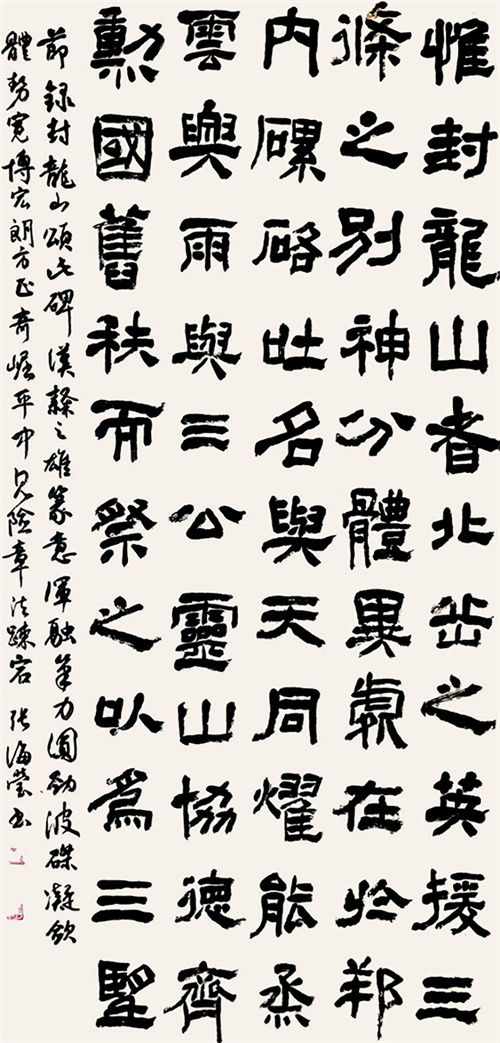 惟封龍山者北岳之英援三
條之別神分體異處在於邦
内磥硌吐名與天同燿能烝
雲興雨與三公靈山協德齊
勳國舊秩而祭之以爲三朢
節録封龍山頌此碑漢隸之雄篆意渾融筆力圓勁波磔凝歛
體勢寬博宏朗方正奇崛平中見險章法疎宕 張海瑩書